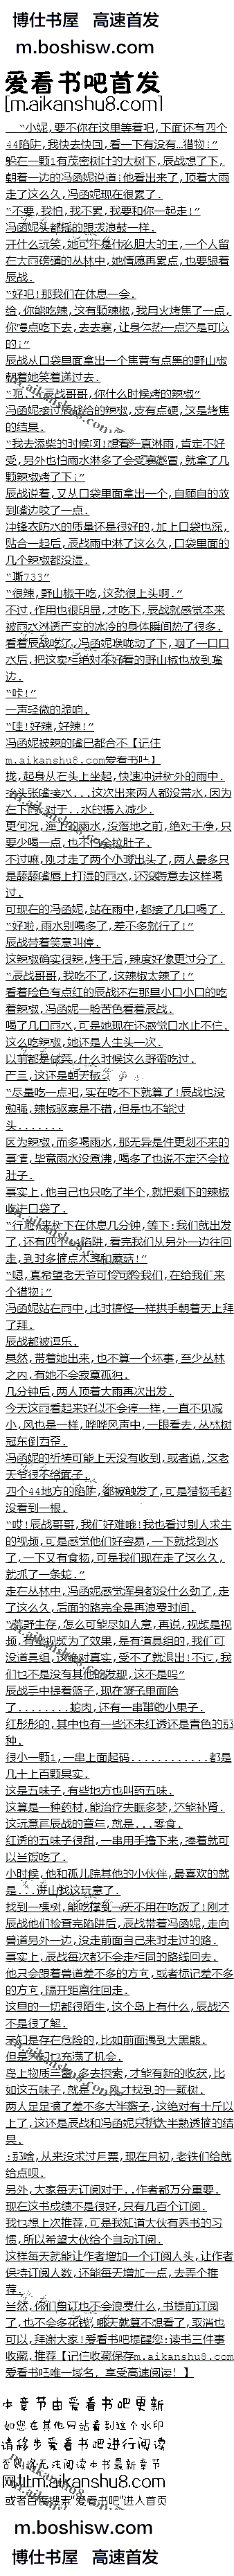 博仕书屋 高速首发
m.boshisw.com
爱看书吧首发
[m.aikanshu8.com]
“小妮,要不你在这里等着吧,下面还有四个
44陷阱,我快去快回,看一下有没有…猎物;”
躲在一颗1有茂密树叶的大树下,辰战想了下,
朝着一边的冯函妮说道:他看出来了,顶着大雨
走了这么久,冯函妮现在很累了.
“不要,我怕,我不累,我要和你一起走!”
冯函妮头都摇的跟拨浪鼓一样.
开什么玩笑,她可不是什么胆大的主,一个人留
在大雨磅礴的丛林中,她情愿再累点,也要跟着
辰战.
“好吧!那我们在休息一会.
给,你能吃辣,这有颗辣椒,我用火烤焦了一点,
你慢点吃下去,去去寒,让身体热一点还是可以
的;”
辰战从口袋里面拿出一个焦黄有点黑的野山椒
朝着她笑着递过去.
辰战哥哥,你什么时候烤的辣椒”
冯函妮接过辰战给的辣椒,皮有点硬,这是烤焦
的结果.
“我去添柴的时候啊!想着一直淋雨,肯定不好
受,另外也怕雨水淋多了会受寒感冒,就拿了几
颗辣椒烤了下;”
辰战说着,又从口袋里面拿出一个,自顾自的放
到嘴边咬了一点.
冲锋衣防水的质量不是很好的,加上口袋也深,
贴合一起后,辰战雨中淋了这么久,口袋里面的
几个辣椒都没湿.
“嘶733”
“很辣,野山椒干吃,这劲很上头啊.”
不过,作用也很明显,才吃下,辰战就感觉本来
被雨水淋透产变的冰冷的身体瞬间热了很多.
看着辰战吃了,冯函妮喉咙动了下,咽了一口口
水后,把这卖相绝对不好看的野山椒也放到嘴
边.
“咔!”
一声轻微的脆响.
“哇!好辣,好辣!”
冯函妮被辣的嘴巴都合不【记住
m.aikanshu8.com爱看书吧】
拢,起身从石头上坐起,快速冲进树外的雨中.
次出来两人都没带水,因为
更何况,海上的雨水,没落地之前,绝对干净,只
要少喝一点,也不会拉肚子.
不过嘛,刚才走了两个小时出头了,两人最多只
是舔舔嘴唇上打湿的雨水,还没特意去这样喝
过.
可现在的冯函妮,站在雨中,都接了几口喝了.
“好啦,雨水别喝多了,差不多就行了!”
辰战带着笑意叫停.
这辣椒确实很辣,烤干后,辣度好像更过分了.
“辰战哥哥,我吃不了,这辣椒太辣了!”
看着脸色有点红的辰战还在那里小口小口的吃
着辣椒,冯函妮一脸苦色看着辰战.
喝了几口雨水,可是她现在还感觉口水止不住.
这么吃辣椒,她还是人生头一次.
以前都是做菜,什么时候这么野蛮吃过.
“尽量吃一点吧,实在吃不下就算了!辰战也没
勉强,辣椒驱寒是不错,但是也不能过
头.......
因为辣椒,而多喝雨水,那无异是件更划不来的
事情,毕竟雨水没煮沸,喝多了也说不定不会拉
肚子.
事实上,他自己也只吃了半个,就把剩下的辣椒
收进口袋了.
“行啦,在树下在休息几分钟,等下:我们就出发
了,还有四个44陷阱,看完我们从另外一边往回
走,到时多摘点木耳和蘑菇!”
“嗯,真希望老天爷可怜可怜我们,在给我们来
个猎物;”
冯函妮站在雨中,此时搞怪一样拱手朝着天上拜
了拜.
辰战都被逗乐.
果然,带着她出来,也不算一个坏事,至少丛林
之内,有她不会寂寞孤独.
几分钟后,两人顶着大雨再次出发.
今天这雨看起来好似不会停一样,一直不见减
小,风也是一样,哗哗风声中,一眼看去,丛林树
冠东倒西歪.
冯函妮的祈祷可能上天没有收到,或者说,这老
天爷很不给面子.
四个44地方的陷阱,都被触发了,可是猎物毛都
没看到一根.
“哎!辰战哥哥,我们好难哦!我也看过别人求生
的视频,可是感觉他们好容易,一下就找到水
了,一下又有食物,可是我们现在走了这么久,
就抓了一条蛇.”
走在丛林中,冯函妮感觉浑身都没什么劲了,走
了这么久,后面的路完全是再浪费时间.
“荒野生存,怎么可能尽如人意,再说,视频是视
频,直播别人为了效果,是有道具组的,我们可
没道具组,求绝对真实,受不了就退出!不过,我
们也不是没有其他的发现,这不是吗”
辰战手中提着篮子,现在篮子里面除
了........蛇肉,还有一串串的小果子.
红彤彤的,其中也有一些还未红透还是青色的那
种.
很小一颗1,一串上面起码............都是
几十上百颗果实.
这是五味子,有些地方也叫药五味.
这算是一种药材,能治疗失眠多梦,还能补肾.
这玩意再辰战的童年,就是...零食.
红透的五味子很甜,一串用手撸下来,捧着就可
以当饭吃了.
小时候,他和孤儿院其他的小伙伴,最喜欢的就
是...进山找这玩意了.
找到一颗树,能吃撑到一天不用在吃饭了!刚才
辰战他们检查完陷阱后,辰战带着冯函妮,走向
兽道另外一边,没走前面自己来时走过的路.
事实上,辰战每次都不会走相同的路线回去.
他只会跟着兽道差不多的方向,或者标记差不多
的方向,隔开距离往回走.
这里的一切都很陌生,这个岛上有什么,辰战还
不是很了解.
未知是存在危险的,比如前面遇到大黑熊.
但是未知也充满了机会.
岛上物质丰富,多去探索,才能有新的收获,比
如这五味子,就是...刚才找到的一颗树.
两人足足摘了差不多大半篮子,这绝对有十斤以
上了,这还是辰战和冯函妮只摘大半熟透摘的结
果.
:那啥,从来没求过月票,现在月初,老铁们给就
给点呗.
另外,大家每天订阅对于..作者都万分重要.
现在这书成绩不是很好,只有几百个订阅.
我也想上次推荐,可是我知道大伙有养书的习
惯,所以希望大伙给个自动订阅.
这样每天就能让作者增加一个订阅人头,让作者
保持订阅人数,还能每天增加一点,去弄个推
荐.
当然,你们自订也不会浪费什么,书提前订阅
了,也不会多花钱,哪天就算不想看了,取消也
可以,拜谢大家!爱看书吧提醒您:读书三件事
收藏,推荐【记住收藏保存m.aikanshu8.com
爱看书吧唯一域名, 享受高速阅读! 】
本章节由爱看书吧更新
如您在其他网站看到这个水印
请移步爱看书吧进行阅读
否则将无法阅读本书最新章节
网址m.aikanshu8.com
或者百度搜索"爱看书吧"进入首页
m.boshisw.com
博仕书屋 高速首发